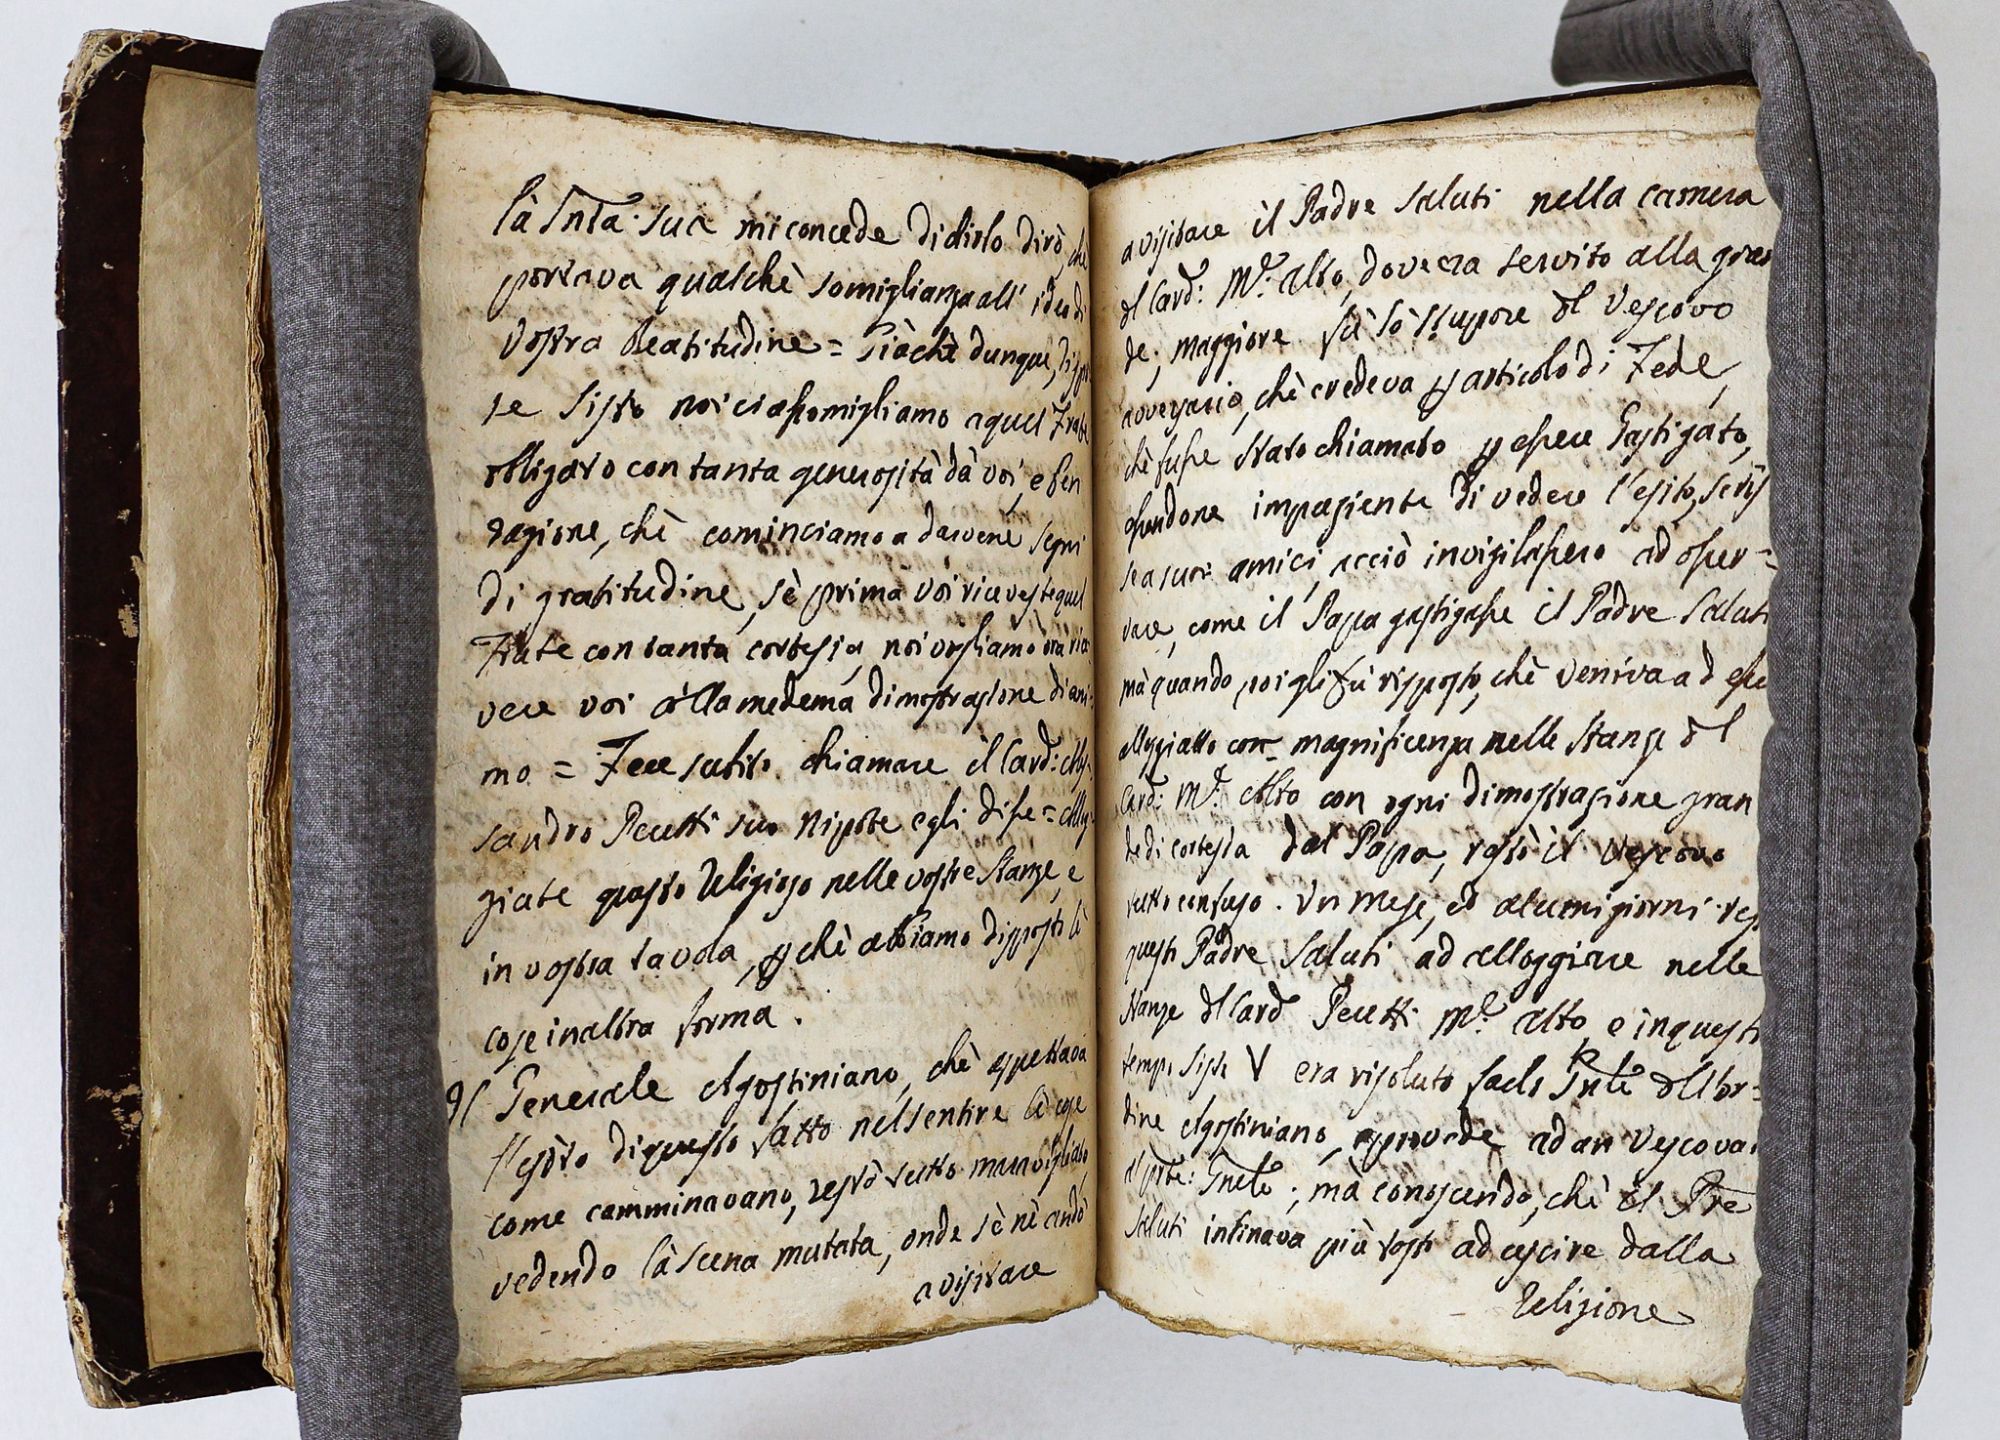 là Sntà. sua mi concede di dirlo dirò, che
portava qualchè somiglianza all' idea di
Vostra Beatitudine = Giàchè dunque,
se Sisto noi ci assomigliamo a quel Frate
obligato con tanta generosità dà voi, e ben
ragione, chè cominciamo a darvene segni
di gratitudine, sè prima voi riceveste quel
Frate con tanta cortesia, noi vogliamo ora rice
vere voi collamedema dimostrazione di ani-
mo = Fece subito chiamare il Card: Ales-
sandro Peretti suo Nipote e gli disse = Allog-
giate questo Religioso nelle vostre Stanze, e
in vostra tavola, p chè abbiamo disposti le
cose in altra forma.
Il Generale Agostiniano, chè aspettava
l'esito di questo fatto nel sentire lè cose
come camminavano, restò tutto maravigliato
vedendo là scena mutata, onde sè nè andò
a visitare
a visitare il Padre Saluti nella camera
dl Card: M.e Alto, dove era servito alla gran
de; maggiore fù lò stupore dl Vescovo
avversario, chè credeva p articolo di Fede,
chè fusse stato chiamato p essere Gastigato,
essendone impaziente di vedere l'esito, scris
se a suoi amici, acciò invigilassero ad osser=
vare, come il Papa gastigasse il Padre Saluti
mà quando poi gli fù risposto, chè veniva ad esse
alloggiatto con magnificenza nelle Stanze dl
Card: M.e Alto con ogni dimostrazione gran
de di cortesia dal Papa, restò il Vescovo
tutto confuso. Un mese, ed alcuni giorni res
questi Padre Saluti ad alloggiare nelle
Stanze dl Card Peretti M.e alto, e in questi
tempi Sisto V era risoluto farlo Gnle dll'or=
dine Agostiniano, ad un Vescova
Gnele; mà conoscendo, chè il Pre
Saluti inclinava più tosto ad uscire dalla
Religione